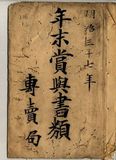 明治三十七年
年末賞與書類
專賣局